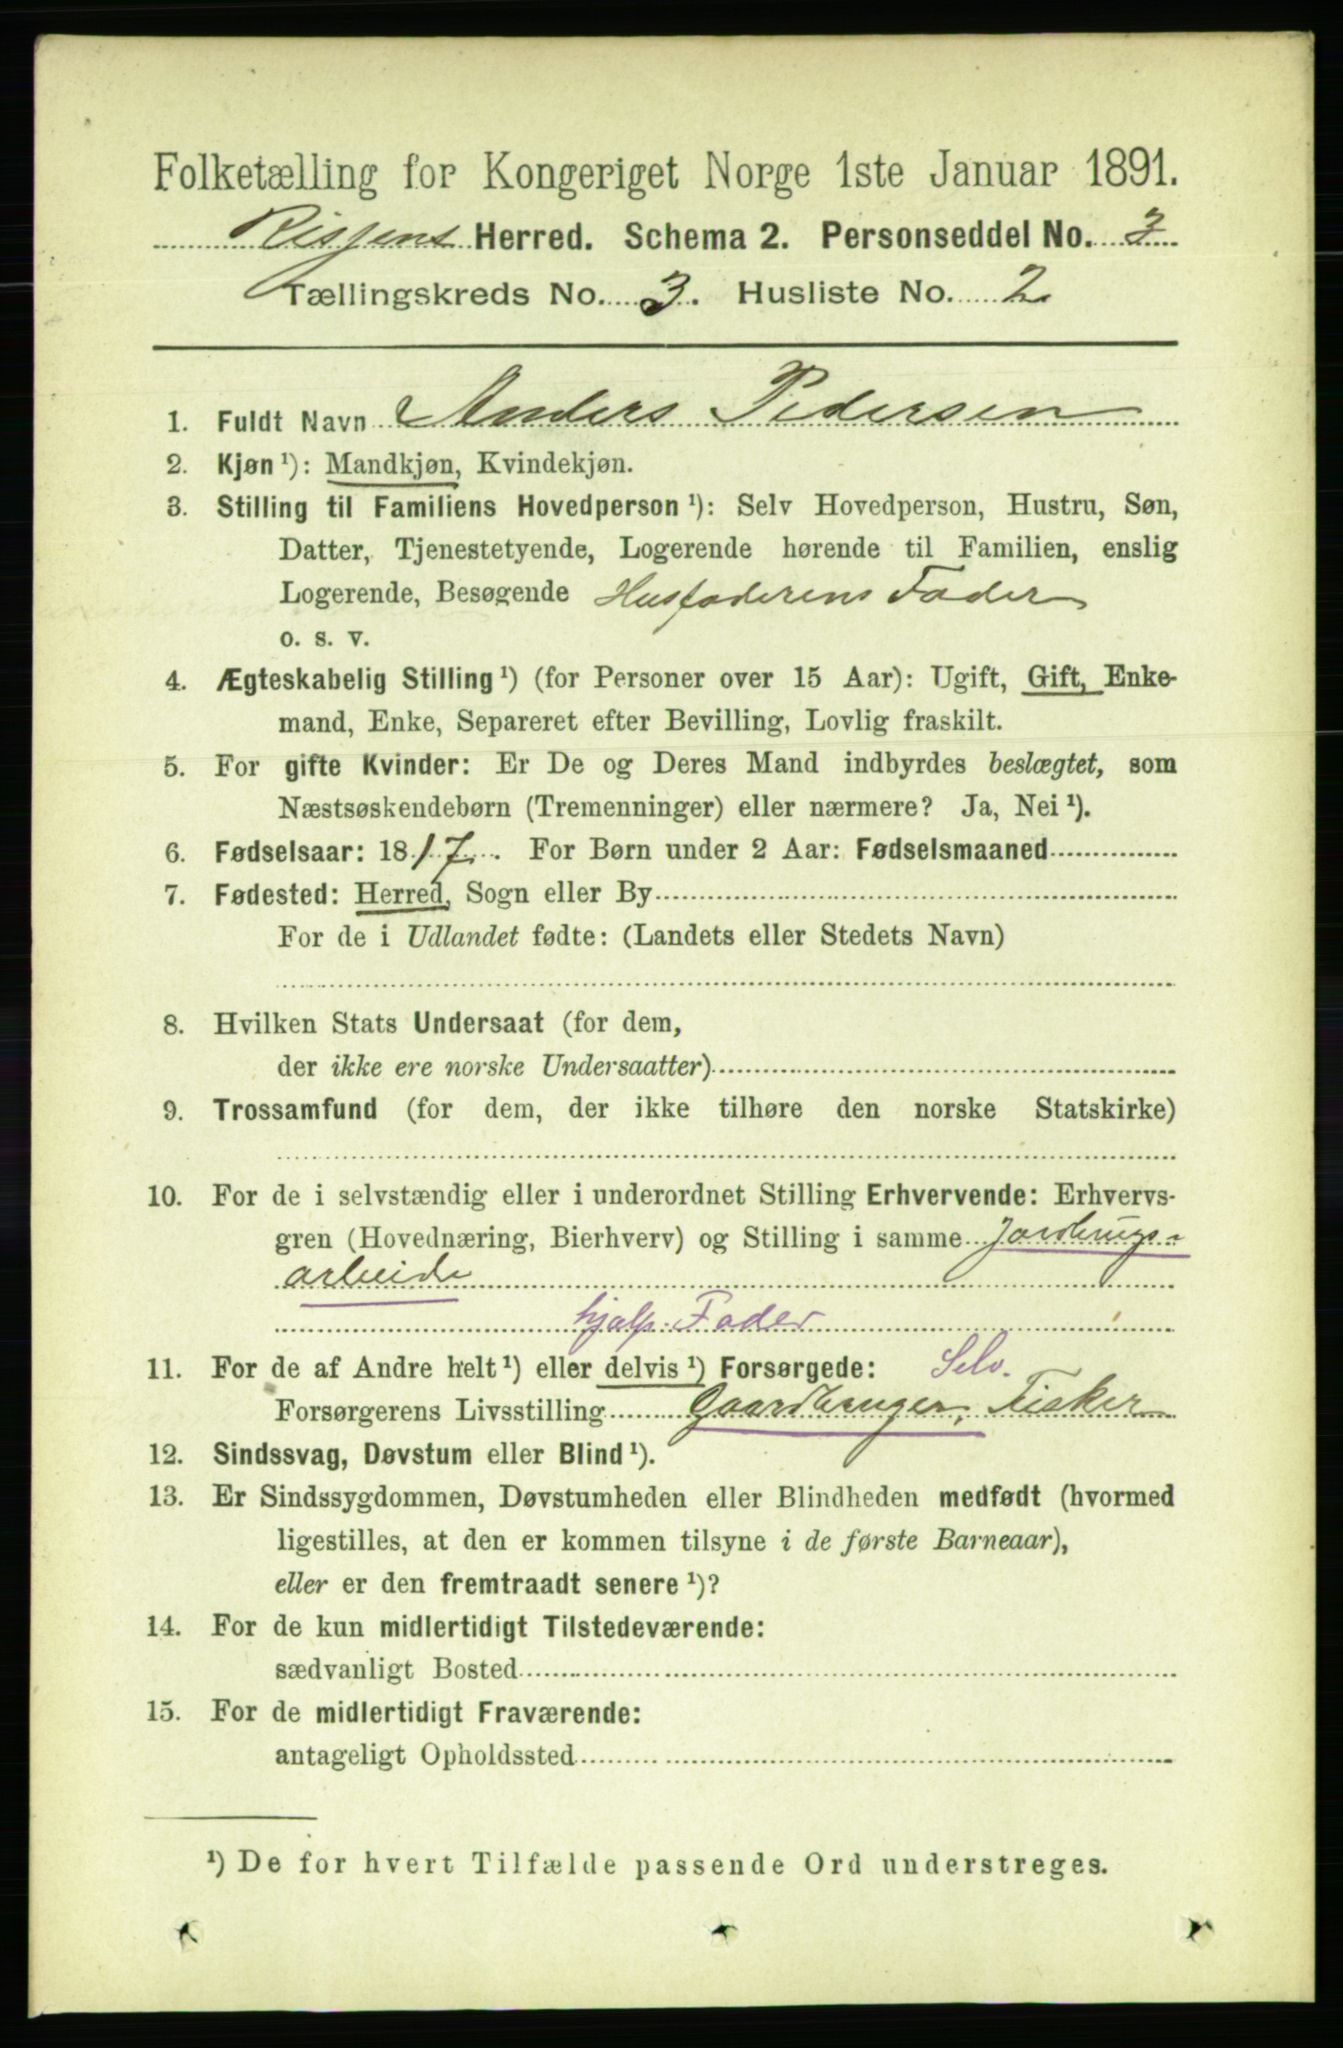 Folketælling for Kongeriget Norge 1ste Januar 1891.
Rissens Herred. Schema 2. Personseddel No. 3
Tællingskreds No. 3. Husliste No. 2
1. Fuldt Navn Anders Pedersen
2. Kjøn¹): Mandkjøn, Kvindekjøn.
3. Stilling til Familiens Hovedperson¹): Selv Hovedperson, Hustru, Søn,
Datter, Tjenestetyende, Logerende hørende til Familien, enslig
Logerende, Besøgende Husfaderens Fader
o. s. v.
4. Ægteskabelig Stilling¹) (for Personer over 15 Aar): Ugift, Gift, Enke-
mand, Enke, Separeret efter Bevilling, Lovlig fraskilt.
5. For gifte Kvinder: Er De og Deres Mand indbyrdes beslægtet, som
Næstsøskendebørn (Tremenninger) eller nærmere? Ja, Nei¹).
6. Fødselsaar: 1817. For Børn under 2 Aar: Fødselsmaaned
7. Fødested: Herred, Sogn eller By
For de i Udlandet fødte: (Landets eller Stedets Navn)
8. Hvilken Stats Undersaat (for dem,
der ikke ere norske Undersaatter)
9. Trossamfund (for dem, der ikke tilhøre den norske Statskirke)
10. For de i selvstændig eller i underordnet Stilling Erhvervende: Erhvervs-
gren (Hovednæring, Bierhverv) og Stilling i samme Jordbrugs-
arbeide
hjælp. Fader
11. For de af Andre helt¹) eller delvis¹) Forsørgede: Selv.
Forsørgerens Livsstilling Gaardbruger, Fisker
12. Sindssvag, Døvstum eller Blind¹).
13. Er Sindssygdommen, Døvstumheden eller Blindheden medfødt (hvormed
ligestilles, at den er kommen tilsyne i de første Barneaar),
eller er den fremtraadt senere¹)?
14. For de kun midlertidigt Tilstedeværende:
sædvanligt Bosted
15. For de midlertidigt Fraværende:
antageligt Opholdssted
¹) De for hvert Tilfælde passende Ord understreges.